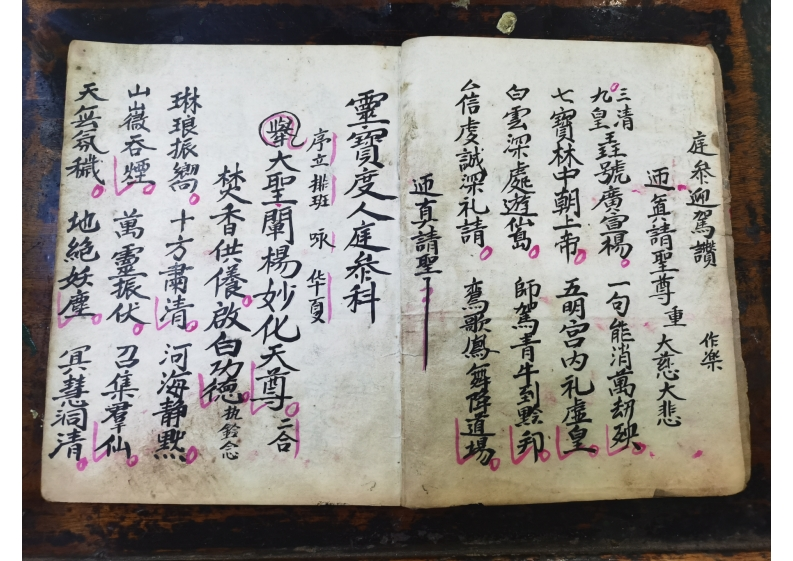 庭參迎駕讚 作樂
迊真請聖尊 重 大慈大悲
三清
九皇 號廣宣楊 一句能消萬劫殃
七寶林中朝上帝 五明宮内礼虛皇
白雲深處遊仙島 師駕青牛到黔邦
信虔誠深礼請 鸞歌鳳舞降道場
迊真請聖了
靈寶度人庭參科
序立排班 咏 华夏
舉大聖闡楊妙化天尊 二合
焚香供儀啟白功德 執鈴念
琳琅振嚮 十方肅清 河海静默
山嶽吞煙 萬靈振伏 召集羣仙
天無氛穢 地絶妖塵 冥慧洞清